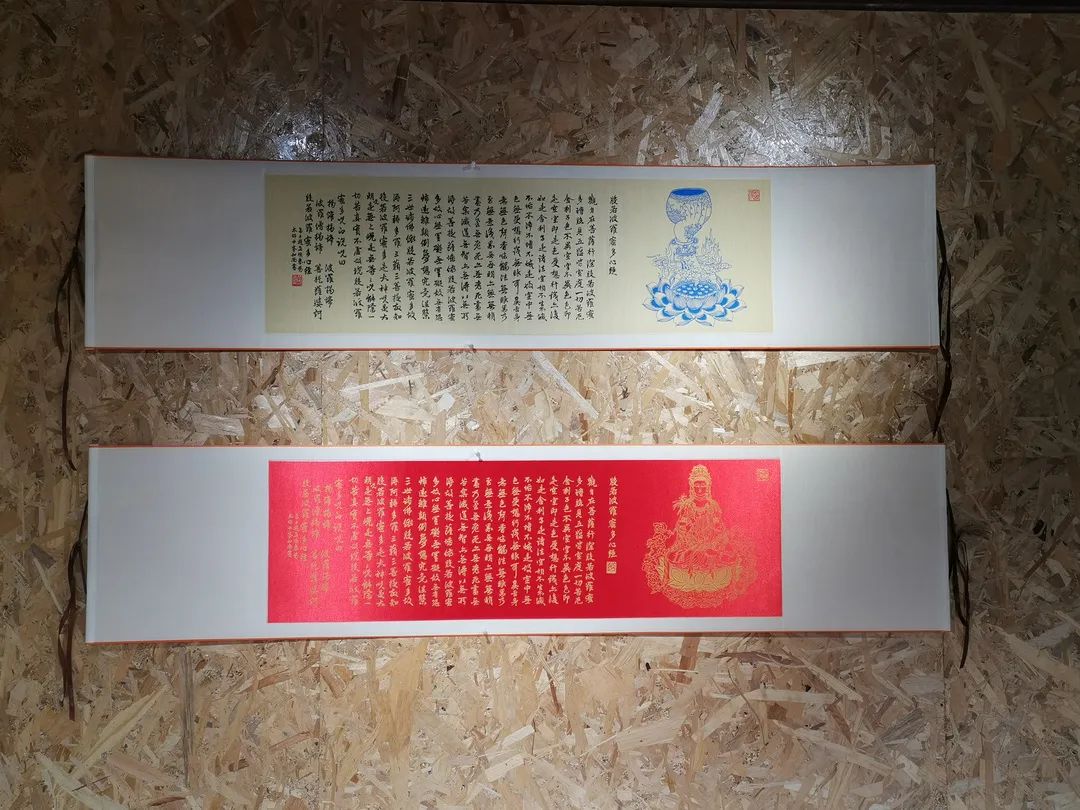 般若波羅蜜多心經
觀自在菩薩行深般若波羅蜜
多時照見五蘊皆空度一切苦厄
舍利子色不異空空不異色色即
是空空即是色受想行識亦復
如是舍利子是諸法空相不生不滅
不垢不淨不增不減是故空中無
色無受想行識無眼耳鼻舌身
意無色聲香味觸法無眼界乃
至無意識界無無明亦無無明
盡乃至無老死亦無老死盡無
苦集滅道無智亦無得以無所
得故菩提薩埵依般若波羅蜜
多故心無罣礙無罣礙故無有恐
怖遠離顛倒夢想究竟涅槃
三世諸佛依般若波羅蜜多故
得阿耨多羅三藐三菩提故知
般若波羅蜜多是大神咒是大
明咒是無上咒是無等等咒能除一
切苦真實不虛故說般若波羅
蜜多咒即說咒曰
揭諦揭諦 波羅揭諦
波羅僧揭諦 菩提薩婆訶
般若波羅蜜多心經
般若波羅蜜多心經
觀自在菩薩行深般若波羅蜜
多時照見五蘊皆空度一切苦厄
舍利子色不異空空不異色色即
是空空即是色受想行識亦復
如是舍利子是諸法空相不生不滅
不垢不淨不增不減是故空中無
色無受想行識無眼耳鼻舌身
意無色聲香味觸法無眼界乃
至無意識界無無明亦無無明
盡乃至無老死亦無老死盡無
苦集滅道無智亦無得以無所
得故菩提薩埵依般若波羅蜜
多故心無罣礙無罣礙故無有恐
怖遠離顛倒夢想究竟涅槃
三世諸佛依般若波羅蜜多故
得阿耨多羅三藐三菩提故知
般若波羅蜜多是大神咒是大
明咒是無上咒是無等等咒能除一
切苦真實不虛故說般若波羅
蜜多咒即說咒曰
揭諦揭諦 波羅揭諦
波羅僧揭諦 菩提薩婆訶
般若波羅蜜多心經